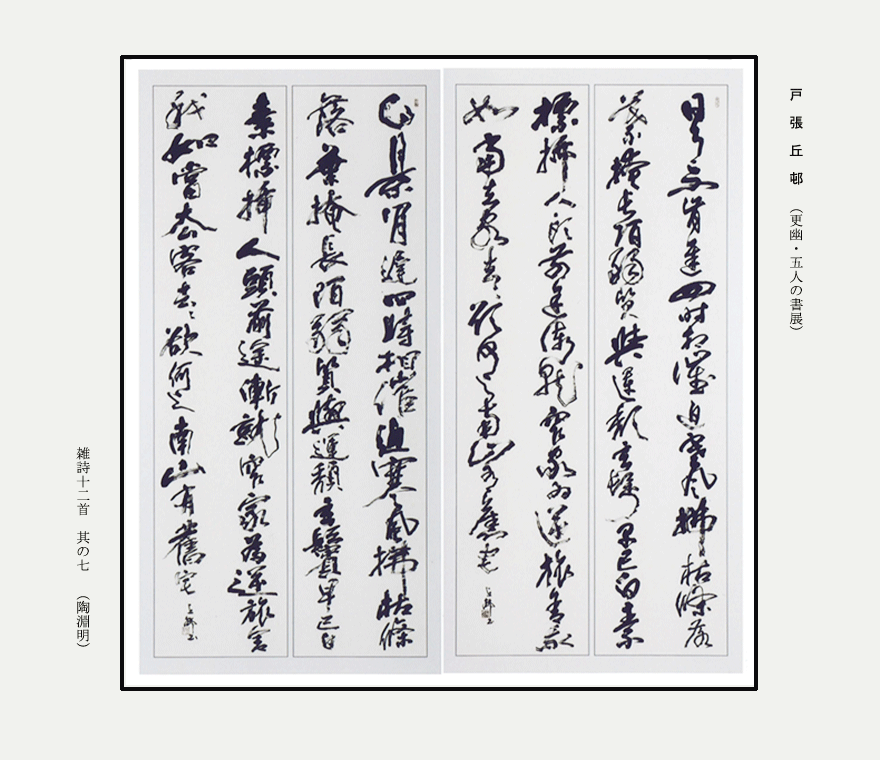 戸張丘邨 （更幽・五人の書展）
日月不肯遲四時相催迫寒風拂枯條落
葉掩長陌弱質與運頽玄鬢早已白素
標插人頭前途漸就窄家為逆旅舍我
如當去客去〻欲何之南山有舊宅
日月不肯遲四時相催迫寒風拂枯條
落葉掩長陌弱質與運頽玄鬢早已白
素標插人頭前途漸就窄家為逆旅舍
我如當去客去〻欲何之南山有舊宅
雑詩十二首 其の七 （陶淵明）